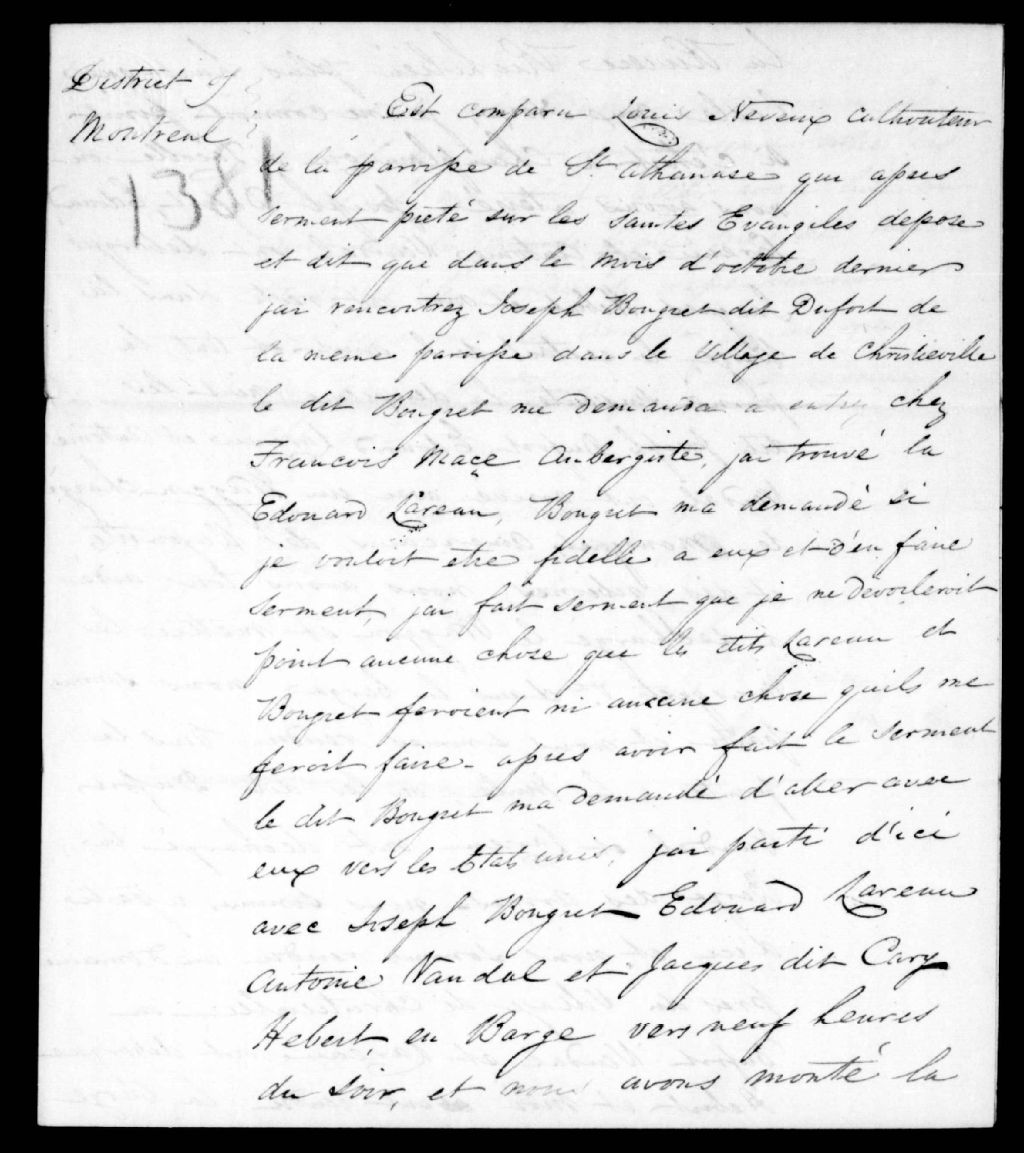 District of
Montreal
1381
Est comparu Louis Neveux cultivateur
de la paroisse de St. athanase qui apres
serment preté sur les saintes Evangiles depose
et dit que dans le mois d'octobre dernier
jai rencontrez Joseph Bougret dit Dufort de
la meme paroisse dans le Village de Christieville
le dit Bougret me demanda a entrez chez
Francois Mace Aubergiste, jai trouvé la
Edouard Lareau, Bougret ma demandé si
je vouloit etre fidelle a eux et d'en faire
serment, jai fait serment que je ne dévoileroit
point aucune chose que les dits Lareau et
Bougret feroient ni aucune chose quils me
feroit faire - apres avoir fait le serment
le dit Bougret ma demandé d'aller avec
eux vers les Etats unis, jai parti d'ici
avec Joseph Bougret Edouard Lareau
Antoine Vandal et Jacques dit Cary
Hebert, en Barge vers neuf heures
du soir, et nous avons monté la